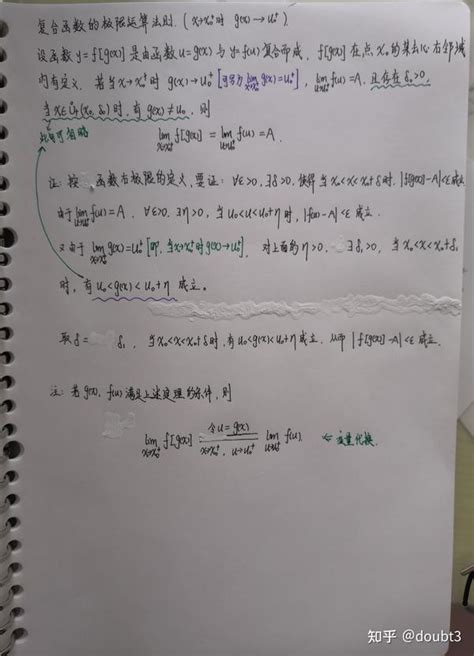 复合函数的极限运算法则. (x→x₀⁺时 g(x)→u₀⁺)
设函数 y=f[g(x)] 是由函数 u=g(x) 与 y=f(u) 复合而成, f[g(x)] 在点 x₀ 的某去心右邻域
内有定义. 若当 x→x₀⁺ 时 g(x)→u₀⁺ [可写为 lim_{x→x₀⁺} g(x)=u₀⁺], lim_{u→u₀⁺} f(u)=A, 且存在 δ₀>0,
当 x∈Ů₊(x₀, δ₀) 时, 有 g(x)≠u₀, 则
此句可省略
lim_{x→x₀⁺} f[g(x)] = lim_{u→u₀⁺} f(u)=A.
证: 按 函数右极限的定义, 要证: ∀ε>0, ∃δ>0, 使得当 x₀<x<x₀+δ 时, |f[g(x)]-A|<ε 成立.
由于 lim_{u→u₀⁺} f(u)=A, ∀ε>0, ∃η>0, 当 u₀<u<u₀+η 时, |f(u)-A|<ε 成立.
又由于 lim_{x→x₀⁺} g(x)=u₀⁺ [即, 当 x→x₀⁺ 时 g(x)→u₀⁺], 对上面的 η>0, ∃δ₁>0, 当 x₀<x<x₀+δ₁
时, 有 u₀<g(x)<u₀+η 成立.
取 δ= δ₁, 当 x₀<x<x₀+δ 时, 有 u₀<g(x)<u₀+η 成立, 从而 |f[g(x)]-A|<ε 成立.
注: 若 g(x), f(u) 满足上述定理的条件, 则
令 u=g(x)
lim_{x→x₀⁺} f[g(x)] ═ lim_{u→u₀⁺} f(u). ← 变量代换.
x→x₀⁺, u→u₀⁺
知乎 @doubt3